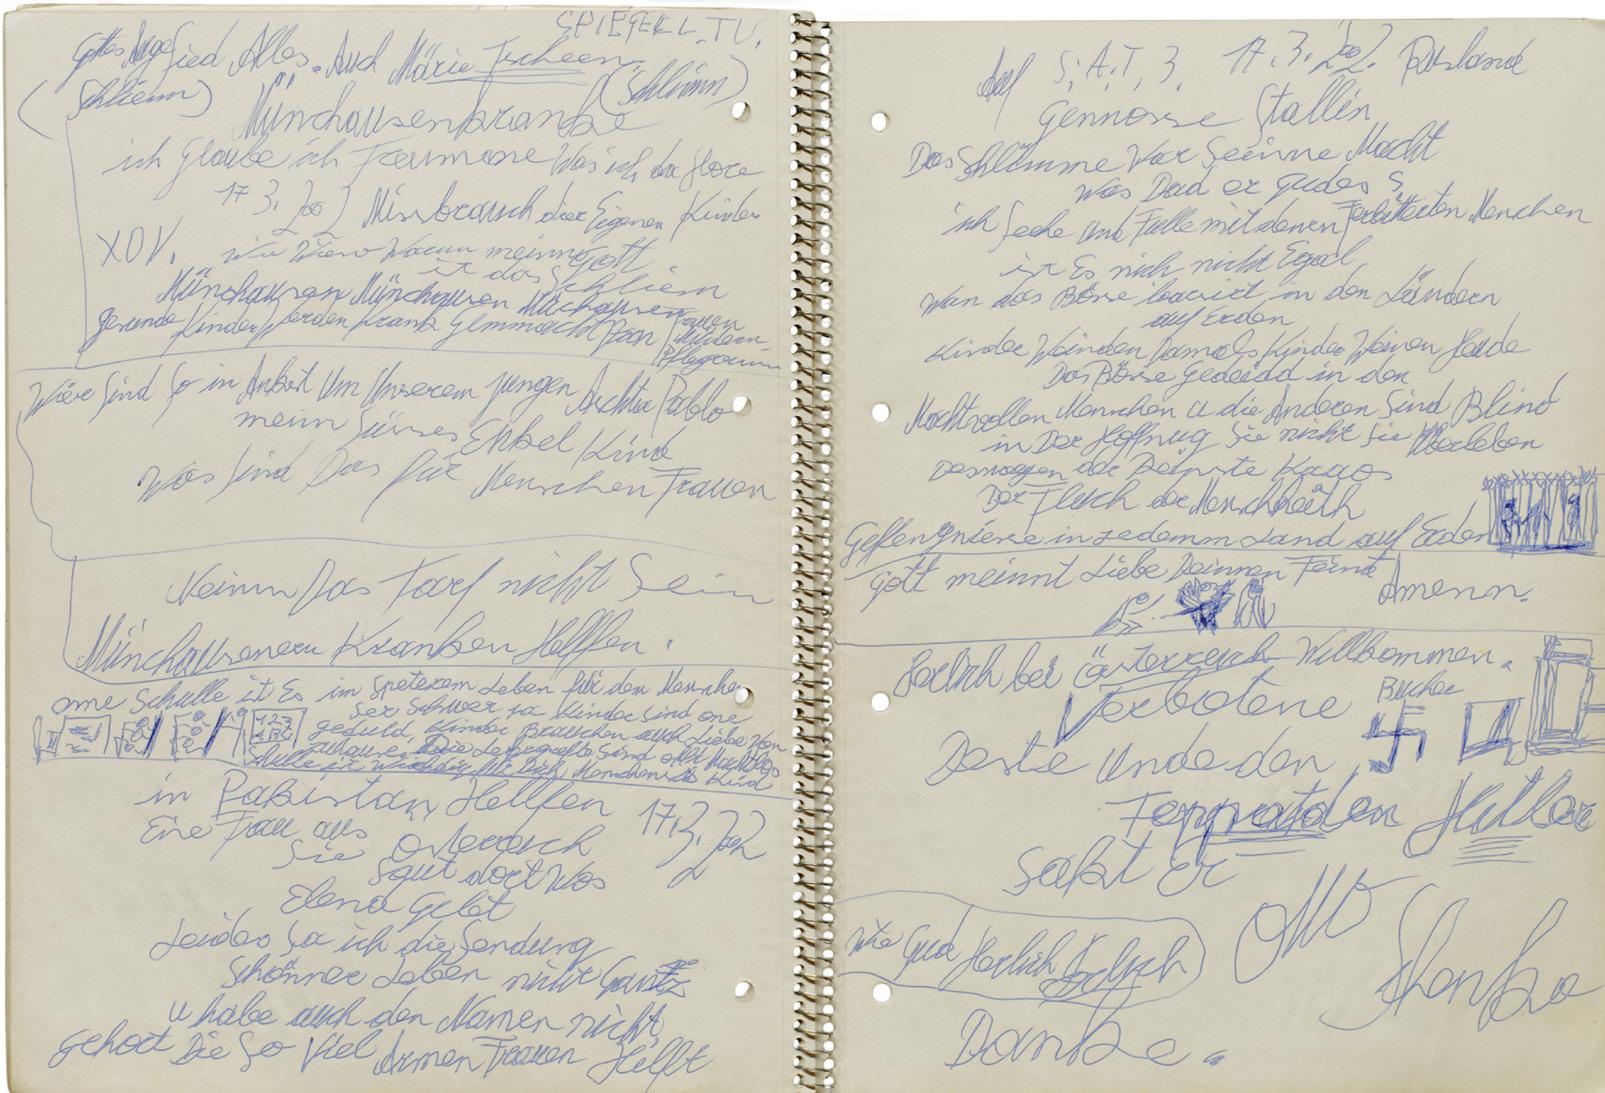 SPIEGEL.TV.
Gottes Auge Sied Alles. Auch Märie Tscheen.
(Schliemn) (Schlimn)
Münchausenkranke
ich Glaube ich Traumone Was ich da Hore
17 3. 2002 Missbrauch der Eigenen Kinder
XOV. wie Warum meinne Gott
it das Schliem
Münchausen Münchausen Müchausen
gesunde Kinder Werden Krank Gemmacht Fon Frauen
Müdern
Pflegerinn
Wier Sind So in Ankst Um Unserem jungen Pablo
mein Süsses Enkel Kind
Was Sind Das für Menschen Frauen
Neinn Das Tarf nicht Sein
Münchausenern Kranken Hellfen.
one Schulle it Es im Speterem Leben für den Mensche
Ser Schwer Kinder Sind one
geduld, Kinder Brauchen auch Liebe Von
zuhause, Sind oft Machtlos
Schulle ist Wichdig Kind
in Pakistan Hellfen 17.3.2002
Eine Frau aus
Sie osterreich
Sgut dort Wos
Elend Gebt
Leider Sa ich die Sendung
Schönner Leben nicht Gantz
u habe auch den Namen nicht
gehort Die So Viel Armen Frauen Hillft
Auf S.A.T. 3. 17.3.2002. Rusland
Gennosse Stallin
Das Schlimme Var Seinne Macht
Was Dad er gudes
ich Seche und Fülle mit denen Ferbitterten Menschen
ist Es nich nicht Egal
Wan das Böse basirt in den Ländern
auf Erden
Kinder Weinden Damals Kinder Weinen Heude
Das Böse gedeid in den
Machtvollen Menschen u die Anderen Sind Blind
in Der Hoffnug Sie nicht Sie Überleben
Deswegen der Reinste Kaos
Der Fluch der Menschheith
Geffengniese in jedemm Land auf Erden
Gott meinnt Liebe Deinnen Feind
Amenn.
Herlich bei Österreich Willkommen.
Verbotene Bucher
Deste Unde den
Hittler
Sakt Er
Wie Gud Herlich
Danke.